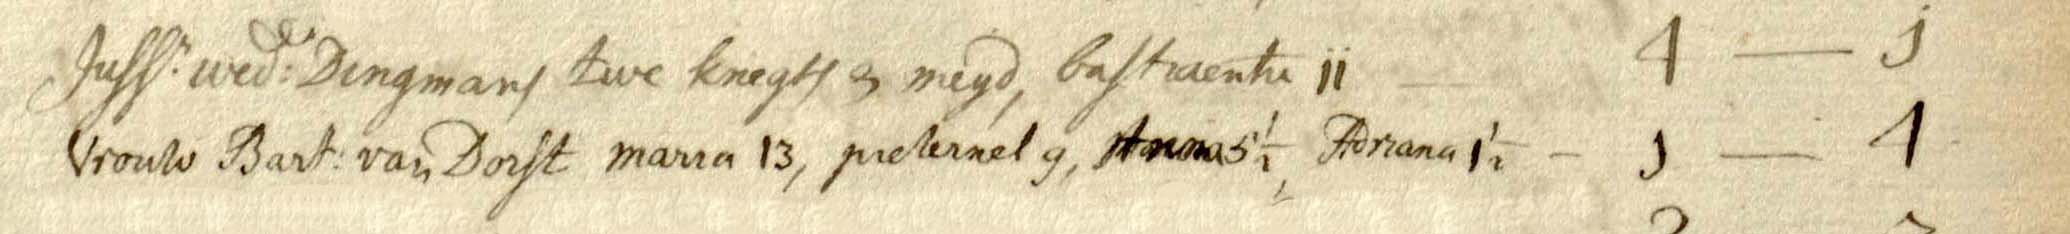 Juffr. wed: Dingmans twe knegts & meyd, bastiaentie 11 — 4 — 1
Vrouw Bart: van Dorst maria 13, pieternel 9, Anna 5 1/2, Adriana 1 1/2 — 1 — 4